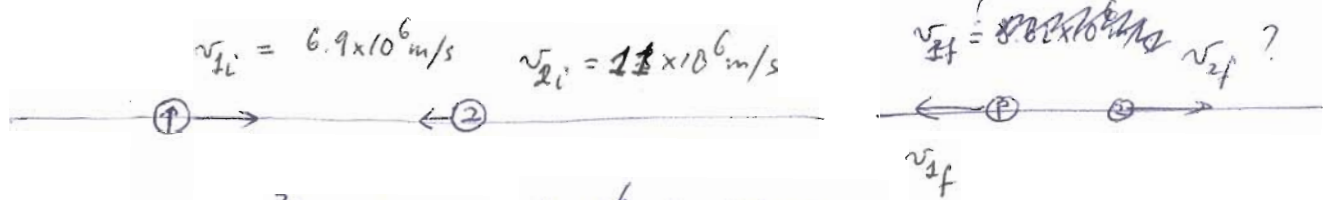 v₁ᵢ = 6.9×10⁶ m/s
v₂ᵢ = 11 ×10⁶ m/s
v₁f =
v₂f ?
1 2
2
v₁f